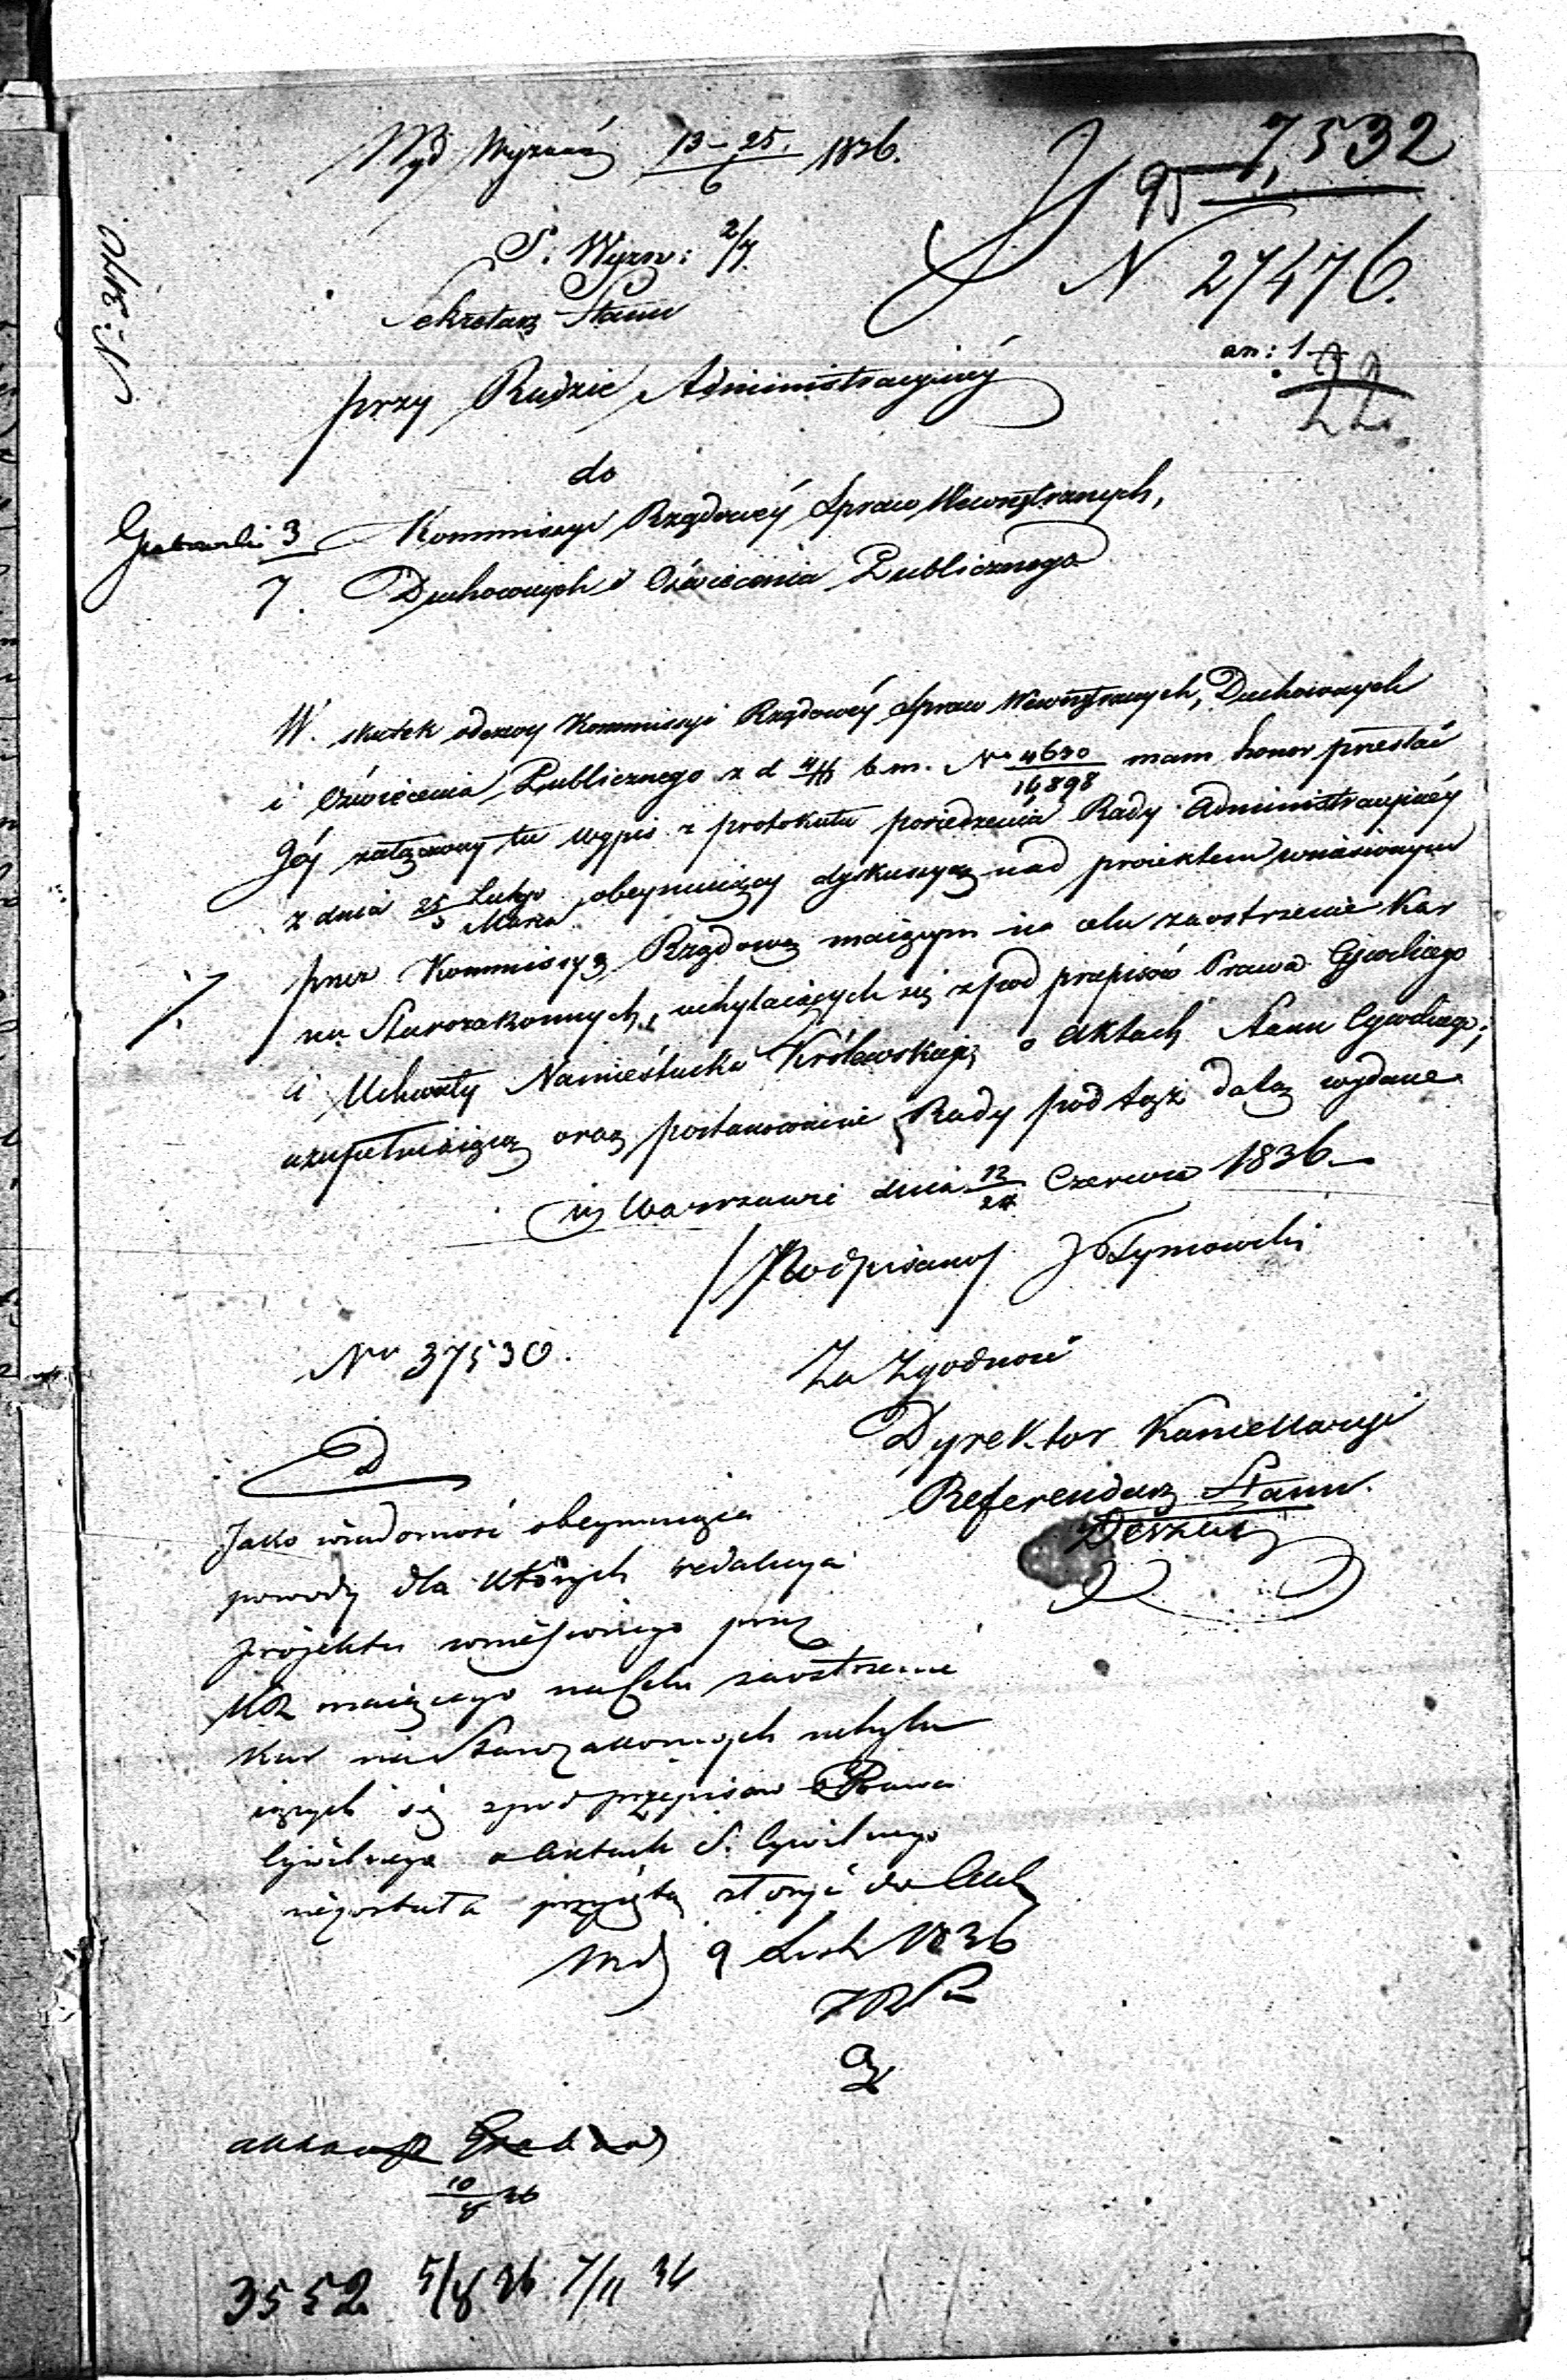 Wyd Wyznań 13–25/6 1836.
7,532
S. Wyzn: 2/7
N 27476.
Sekretarz Stanu
an: 1
przy Radzie Administracyinéy
22
do
Grabowski 3/7
Kommissyi Rządowéy Spraw Wewnętrznych,
Duchownych i Oświecenia Publicznego
W skutek odezwy Kommissyi Rządowéy Spraw Wewnętrznych, Duchownych
i Oświecenia Publicznego z d b.m. No 4630/16898 mam honor przesłać
Jéy załączony tu wypis z protokułu posiedzenia Rady Administracyinéy
z dnia Lutego/Marca obeymuiący dyskussyą nad proiektem wniesionym
przez Kommissyą Rządową maiącym na celu zaostrzenie Kar
na Starozakonnych, uchylaiących się z pod przepisów Prawa Cywilnego
i Uchwały Namiestnika Królewskiego o Aktach Stanu Cywilnego;
uzupełniaiącą oraz postanowienie Rady pod tąż datą wydane
w Warszawie dnia 12/24 Czerwca 1836
/Podpisano/ J Tymowski
No 37530.
Za Zgodność
Dyrektor Kancellaryi
Referendarz Stanu.
Jako wiadomość obeymuiąca
powody dla których redakcya
projektu wniesionego przez
maiącego na Celu zaostrzenie
Kar na Starozakonnych uchyla
iących się z pod przepisow Prawa
Cywilnego o Aktach S. Cywilnego
niezostała przyiętą złożyć do Akt
9 1836
10/8 36
3552 5/8 36 7/11 36